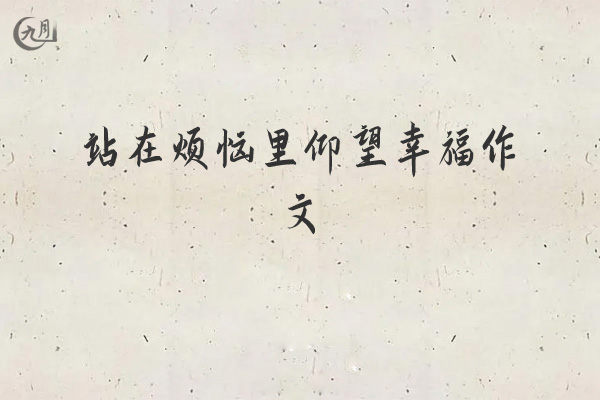 九月
站在烦恼里仰望幸福作
文